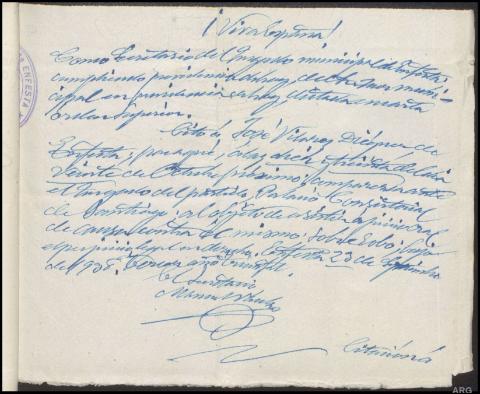 ¡Viva España!
Como Secretario del Juzgado municipal de Enfesta
cumpliendo providencia de hoy, del Sr. Juez muni-
cipal en providencia de hoy, dictada en carta
orden Superior.
Cito á José Vilarez Diéguez de
Enfesta, para que, á las diez y treinta del día
veinte de Octubre próximo, comparezca ante
el Juzgado del partido, Palacio Consistorial
de Santiago, al objeto de asistir á juicio oral
de causa contra el mismo, sobre robo; bajo
el perjuicio legal en derecho. Enfesta 23 de Septiembre
de 1938. Tercer año triunfal.
El Secretario
Manuel
Citación
ENFESTA
ARG